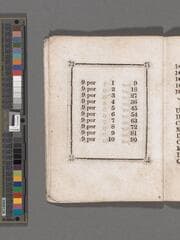 9 por 1 9
9 por 2 18
9 por 3 27
9 por 4 36
9 por 5 45
9 por 6 54
9 por 7 63
9 por 8 72
9 por 9 81
9 por 10 90